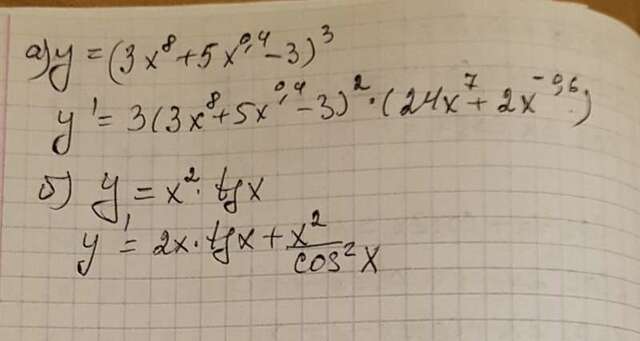 а) y = (3x⁸ + 5x⁰,⁴ - 3)³
y' = 3(3x⁸ + 5x⁰,⁴ - 3)² · (24x⁷ + 2x⁻⁰,⁶)
б) y = x² · tgx
y' = 2x · tgx + x²/cos²x